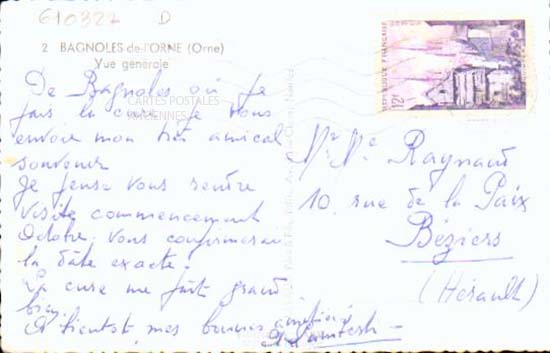 610327 D
2 BAGNOLES de-l'ORNE (Orne)
Vue générale
De Bagnoles où je
fais la cure je vous
envoie mon très amical
souvenir
Je pense vous rendre
visite commencement
Octobre. Vous confirmerai
la date exacte.
La cure me fait grand
bien.
A bientôt, mes bonnes amitiés
CARTES POSTALES
ANCIENNES
REPUBLIQUE FRANÇAISE
12F
Mr Me Raynaud
10 rue de la Paix
Béziers
(Hérault)